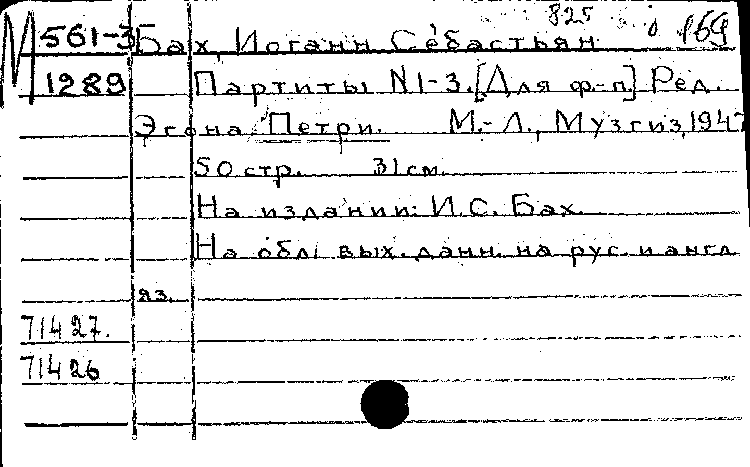 825 169
М 561-3 Бах, Иоганн Себастьян
1289 Партиты N1-3. [Для ф-п.] Ред.
Эгона Петри. М.-Л., Музгиз, 1947
50 стр. 31 см.
На издании: И.С. Бах.
На обл. вых. данн. на рус. и англ
яз.
71427.
71426